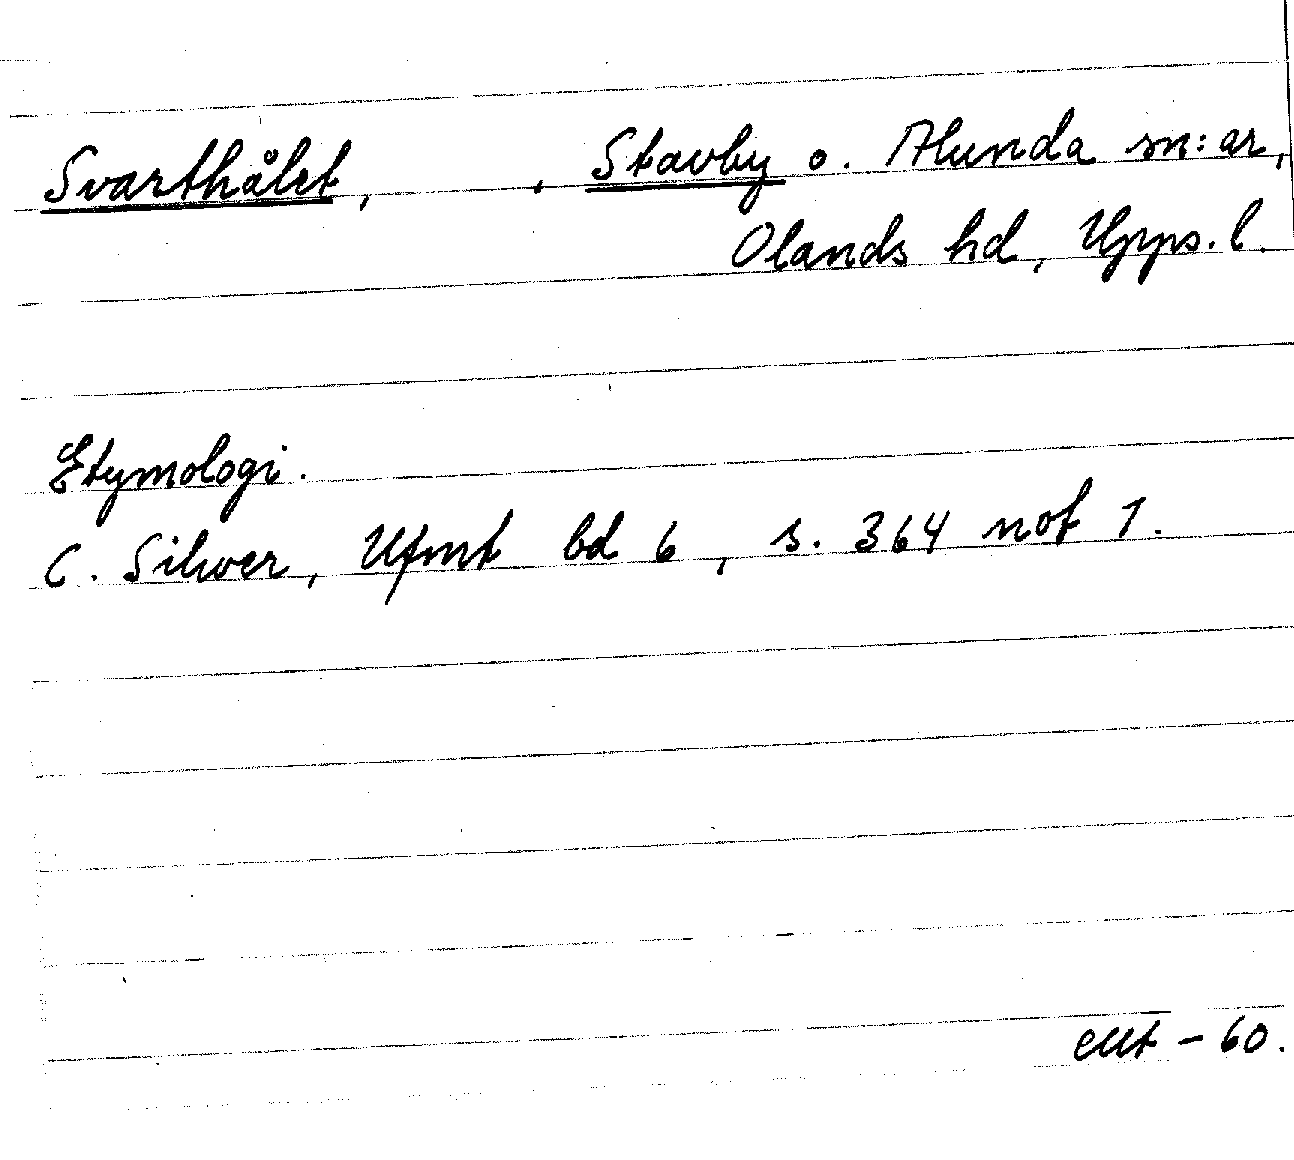 Svarthålet, , Stavby o. Alunda sn:ar,
Olands hd, Upps. l.
Etymologi.
C. Silwer, Ufmt bd 6, s. 364 not 1.
- 60.